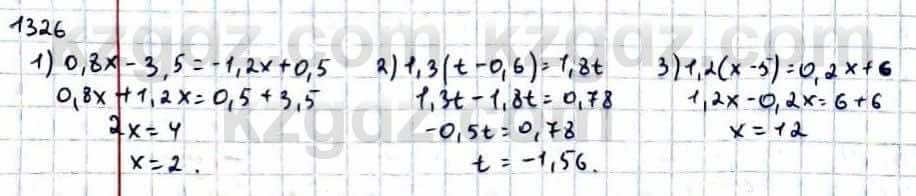 1326
1) 0,8x - 3,5 = -1,2x + 0,5
0,8x + 1,2x = 0,5 + 3,5
2x = 4
x = 2.
2) 1,3(t - 0,6) = 1,8t
1,3t - 1,8t = 0,78
-0,5t = 0,78
t = -1,56.
3) 1,2(x - 5) = 0,2x + 6
1,2x - 0,2x = 6 + 6
x = 12
kzgdz.com
kzgdz.com